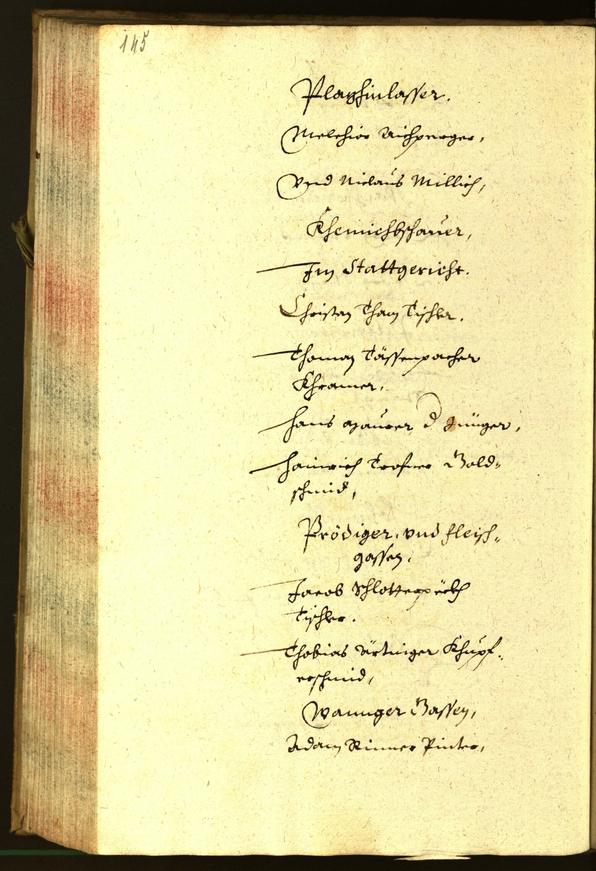 145
Plazhinlasser.
Melchior Aichperger,
Vnd Niclaus Millich,
Khemichbschauer,
Jm Stattgericht.
Christan Than Tischler.
Thoman Tässenpacher
Khramer,
Hans Maurer d Jünger,
Hainrich Trofner Gold-
schmid,
Prödiger, vnd fleisch-
gassen,
Jacob Schlotterpöckh
Tischler.
Thobias Khupf-
erschmid,
Wannger Gassen,
Adam Rinner Pinter,